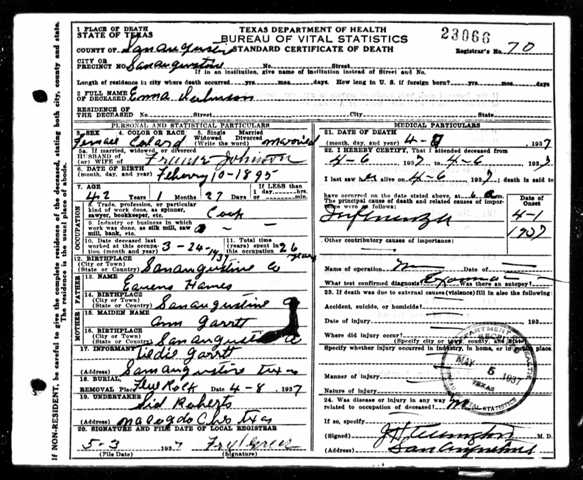 TEXAS DEPARTMENT OF HEALTH
BUREAU OF VITAL STATISTICS
STANDARD CERTIFICATE OF DEATH
23066
Registrar's No. 70
1 PLACE OF DEATH
STATE OF TEXAS
COUNTY OF San Augustine
CITY OR
PRECINCT NO. San Augustine No. Street
If in an institution, give name of institution instead of Street and No.
Length of residence in city where death occurred yrs. mos. days. How long in U. S. if foreign born? yrs. mos. days
2 FULL NAME
OF DECEASED Emma Johnson
RESIDENCE OF
THE DECEASED No. Street City State
PERSONAL AND STATISTICAL PARTICULARS
3 SEX 4. COLOR OR RACE 5. Single Married
Widowed Divorced
(Write the word)
Female Colard married
5a. If married, widowed, or divorced
HUSBAND OF
(or) WIFE OF Johnson
6. DATE OF BIRTH
(month, day, and year) 10-1895
7. AGE If LESS than
1 day,
42 Years 1 Months 27 Days hrs. min.
OCCUPATION
8. Trade, profession, or particular
kind of work done, as spinner,
sawyer, bookkeeper, etc. Cook
9. Industry or business in which
work was done, as silk mill, saw
mill, bank, etc.
10. Date deceased last
worked at this occupation
(month and year) 3-24-1937
11. Total years
spent in this
occupation 26 years
12. BIRTHPLACE
(State or Country) San Augustine Co
FATHER
13. NAME
14. BIRTHPLACE
(State or Country) San Augustine
MOTHER
15. MAIDEN NAME
Ann Garrett
16. BIRTHPLACE
(State or Country) San Augustine
17. INFORMANT
Garrett
(Address) San Augustine Texas
18. BURIAL,
REMOVAL Place Date 4-8 1937
19. UNDERTAKER
Sid Roberts
(Address) Texas
20. SIGNATURE AND FILE DATE OF LOCAL REGISTRAR
5-3 1937
(File Date) (Signature)
MEDICAL PARTICULARS
21. DATE OF DEATH
(month, day, and year) 4-8 1937
22. I HEREBY CERTIFY, that I attended deceased from
4-6 1937 to 4-6 1937
I last saw h alive on 4-6 1937 death is said to
have occurred on the date stated above, at 6 a m.
The principal cause of death and related causes of importance were:
Date of Onset
Influenza 4-1
Other contributory causes of importance:
Name of operation Date of
What test confirmed diagnosis? Was there an autopsy?
23. If death was due to external causes (violence) fill in also the following
Accident, suicide, or homicide?
Date of injury 193
Where did injury occur?
(Specify city or county and state)
Specify whether injury occurred in industry, in home, or in public place
Manner of injury
Nature of injury
24. Was disease or injury in any way
related to occupation of deceased?
If so, specify
(Signed) M. D.
(Address) San Augustine
MAY 5 1937
TEXAS